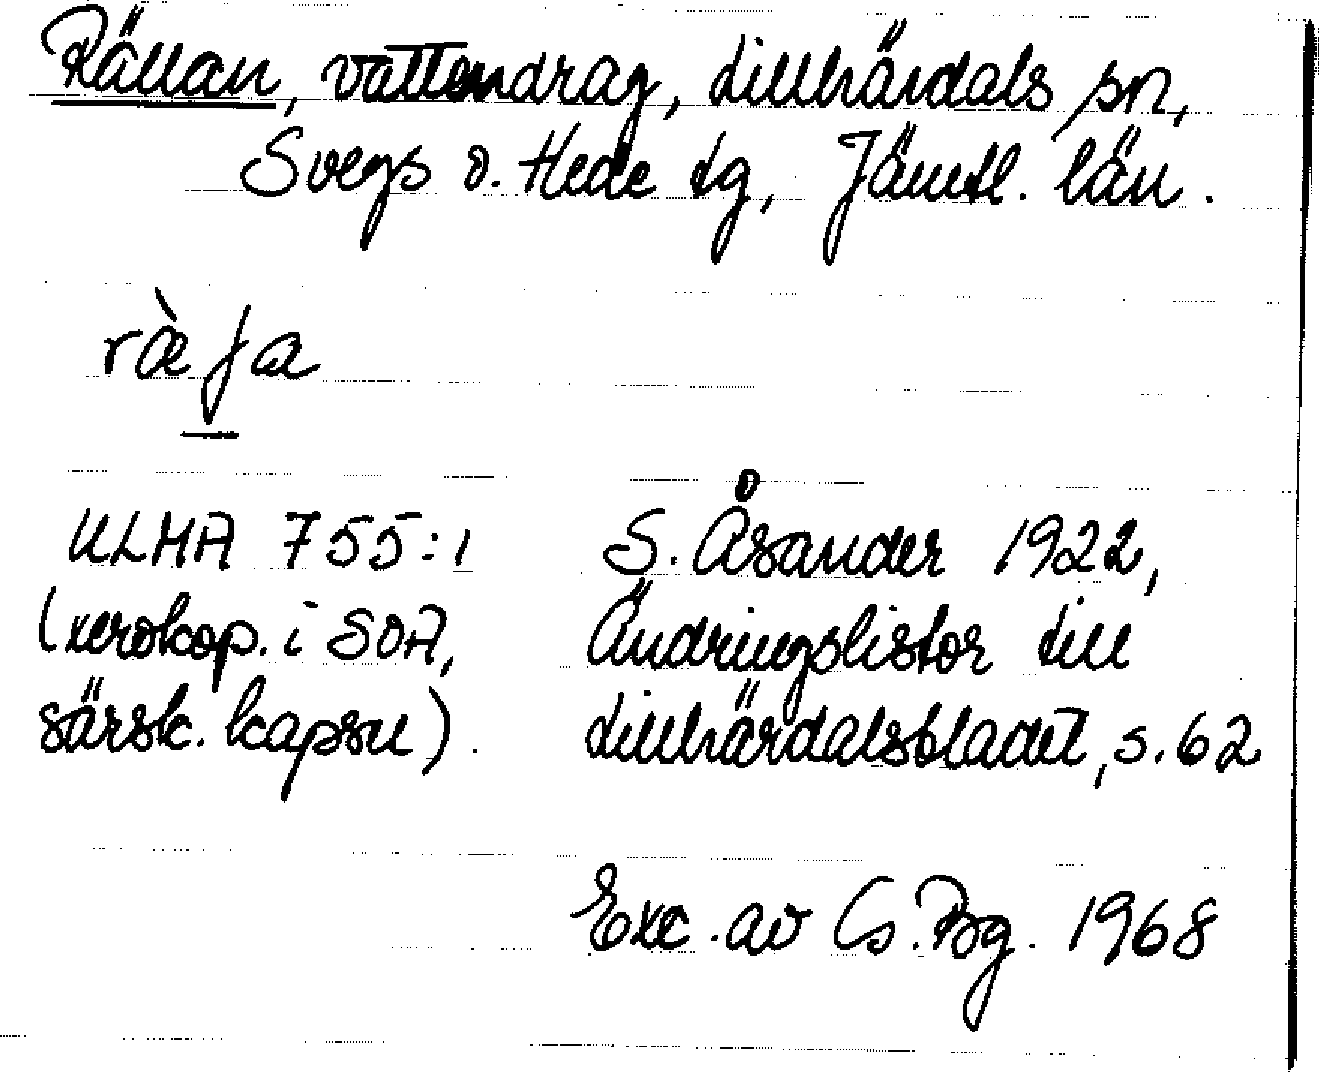 Rällan, vattendrag, Lillhärdals sn,
Svegs o. Hede tg, Jämtl. län.
rὰʃa
ULMA 755:1
(xerokop. i SOA,
särsk. kapsel).
S. Åsander 1922,
Ändringslistor till
Lillhärdalsbladet, s. 62
Exc. av Cs. Bg. 1968